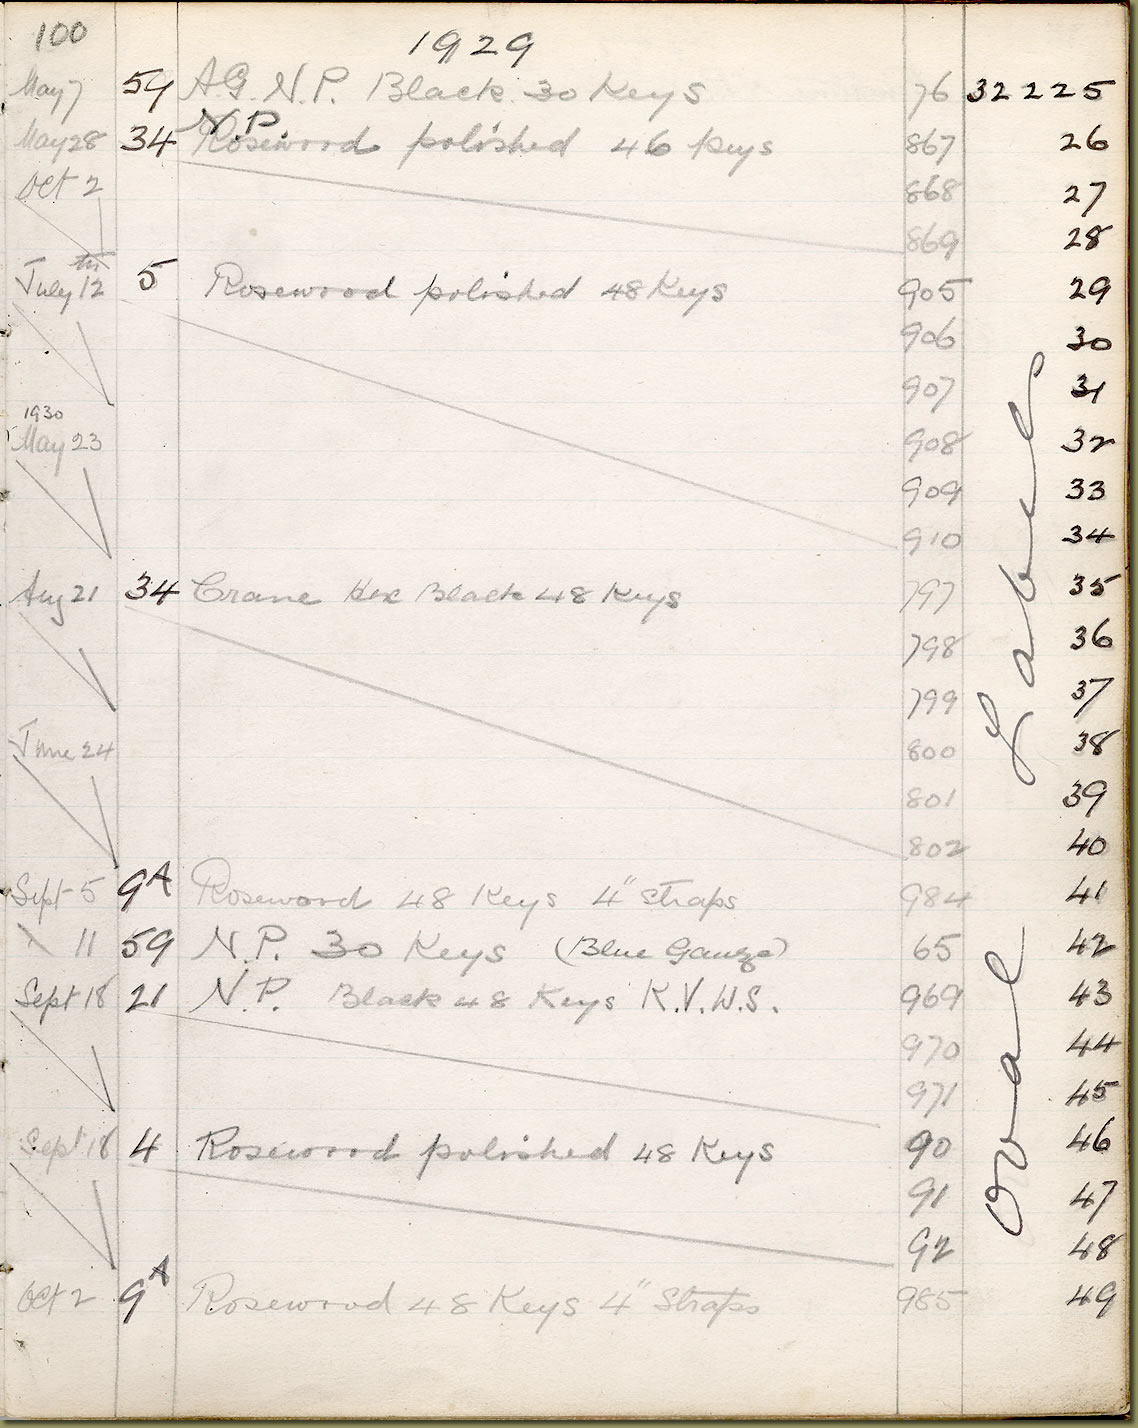 100
1929
May 7 59 A.G. N.P. Black 30 Keys 76 32225
N.P.
May 28 34 Rosewood polished 46 Keys 867 26
Oct 2 868 27
869 28
July 12 5 Rosewood polished 48 Keys 905 29
906 30
907 31
1930
May 23 908 32
909 33
910 34
Aug 21 34 Crane Hex Black 48 Keys 797 35
798 36
799 37
June 24 800 38
801 39
802 40
Sept 5 9A Rosewood 48 Keys 4" Straps 984 41
\ 11 59 N.P. 30 Keys (Blue Gauze) 65 42
Sept 18 21 N.P. Black 48 Keys K.V.W.S. 969 43
970 44
971 45
Sept 18 4 Rosewood polished 48 Keys 90 46
91 47
92 48
Oct 2 9A Rosewood 48 Keys 4" Straps 985 49
Oval Label